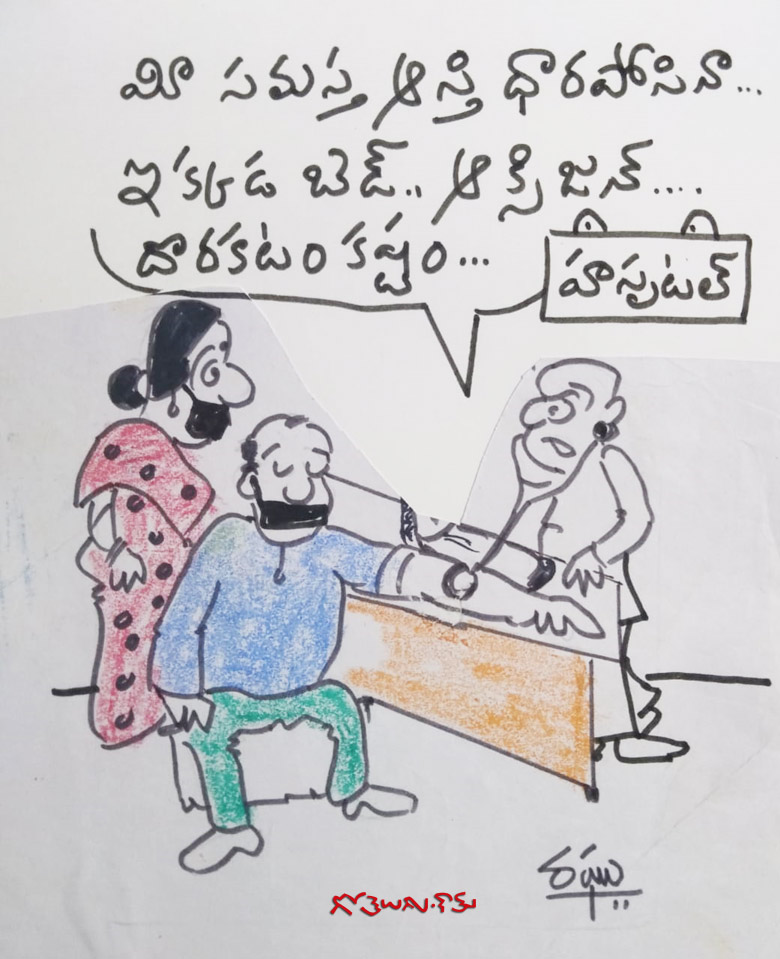 మీ సమస్త ఆస్తి ధారపోసినా...
ఇక్కడ బెడ్.. ఆక్సిజన్....
దొరకటం కష్టం...
హాస్పటల్
రఘు
గోతెలుగు.కామ్